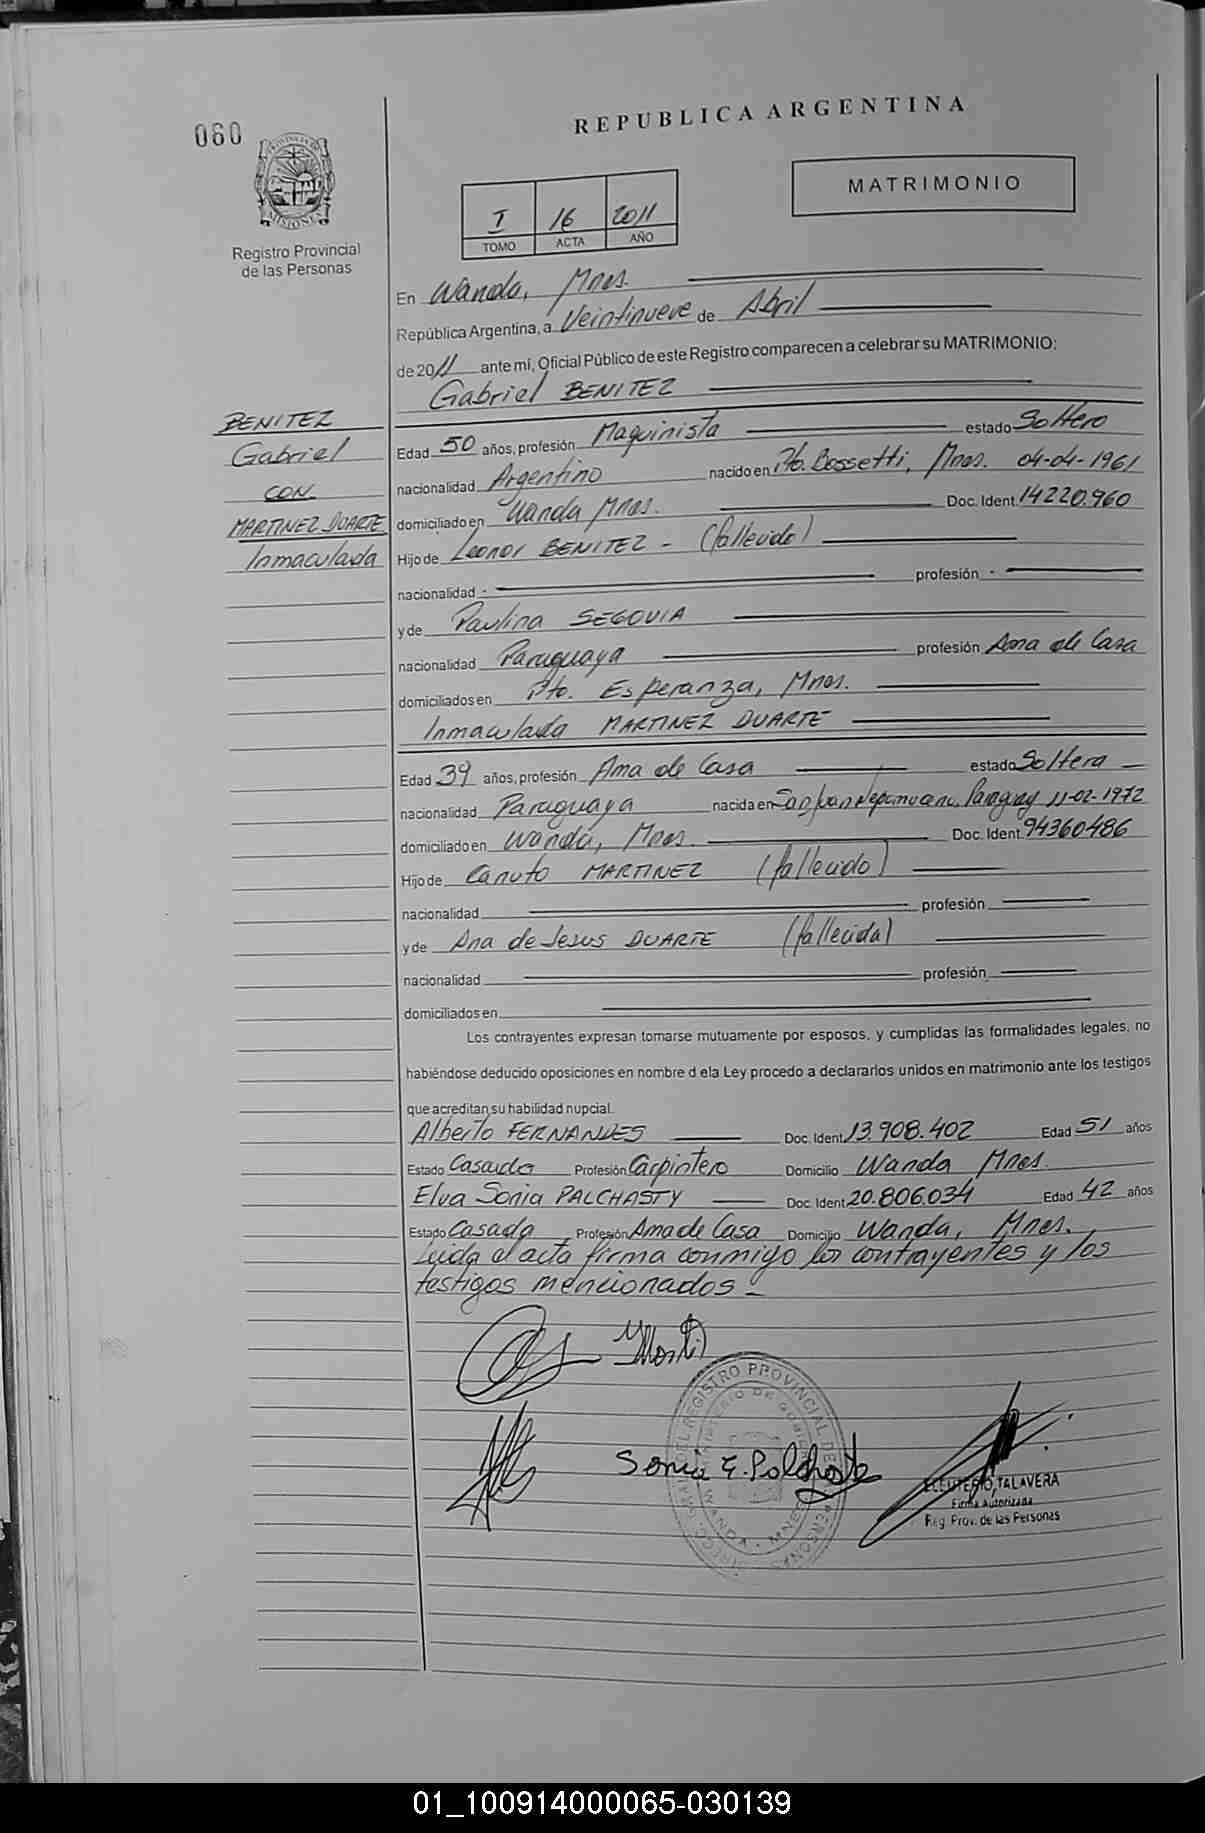 060
REPUBLICA ARGENTINA
PROVINCIA DE
MISIONES
Registro Provincial
de las Personas
I 16 2011
TOMO ACTA AÑO
MATRIMONIO
En Wanda, Mnes.
República Argentina, a Veintinueve de Abril
de 2011 ante mí, Oficial Público de este Registro comparecen a celebrar su MATRIMONIO:
Gabriel BENITEZ
BENITEZ
Gabriel
CON
MARTINEZ DUARTE
Inmaculada
Edad 50 años, profesión Maquinista estado Soltero
nacionalidad Argentino nacido en Pto. Bossetti, Mnes. 04-04-1961
domiciliado en Wanda Mnes. Doc. Ident. 14220.960
Hijo de Leonor BENITEZ - (fallecido)
nacionalidad - profesión -
y de Paulina SEGOVIA
nacionalidad Paraguaya profesión Ama de Casa
domiciliados en Pto. Esperanza, Mnes.
Inmaculada MARTINEZ DUARTE
Edad 39 años, profesión Ama de Casa estado Soltera
nacionalidad Paraguaya nacida en San Juan Nepomuceno, Paraguay 11-02-1972
domiciliado en Wanda, Mnes. Doc. Ident. 94360486
Hijo de Canuto MARTINEZ (fallecido)
nacionalidad profesión
y de Ana de Jesus DUARTE (fallecida)
nacionalidad profesión
domiciliados en
Los contrayentes expresan tomarse mutuamente por esposos, y cumplidas las formalidades legales, no
habiéndose deducido oposiciones en nombre d ela Ley procedo a declararlos unidos en matrimonio ante los testigos
que acreditan su habilidad nupcial.
Alberto FERNANDES Doc. Ident. 13.908.402 Edad 51 años
Estado Casado Profesión Carpintero Domicilio Wanda Mnes.
Elva Sonia PALCHASTY Doc. Ident 20.806.034 Edad 42 años
Estado Casada Profesión Ama de Casa Domicilio Wanda, Mnes.
Leida el acta firma conmigo los contrayentes y los
testigos mencionados -
REGISTRO PROVINCIAL DE LAS PERSONAS
MINISTERIO DE GOBIERNO
WANDA - MNES
Sonia E. Palchaste
ELEUTERIO TALAVERA
Firma Autorizada
Reg. Prov. de las Personas
01_100914000065-030139